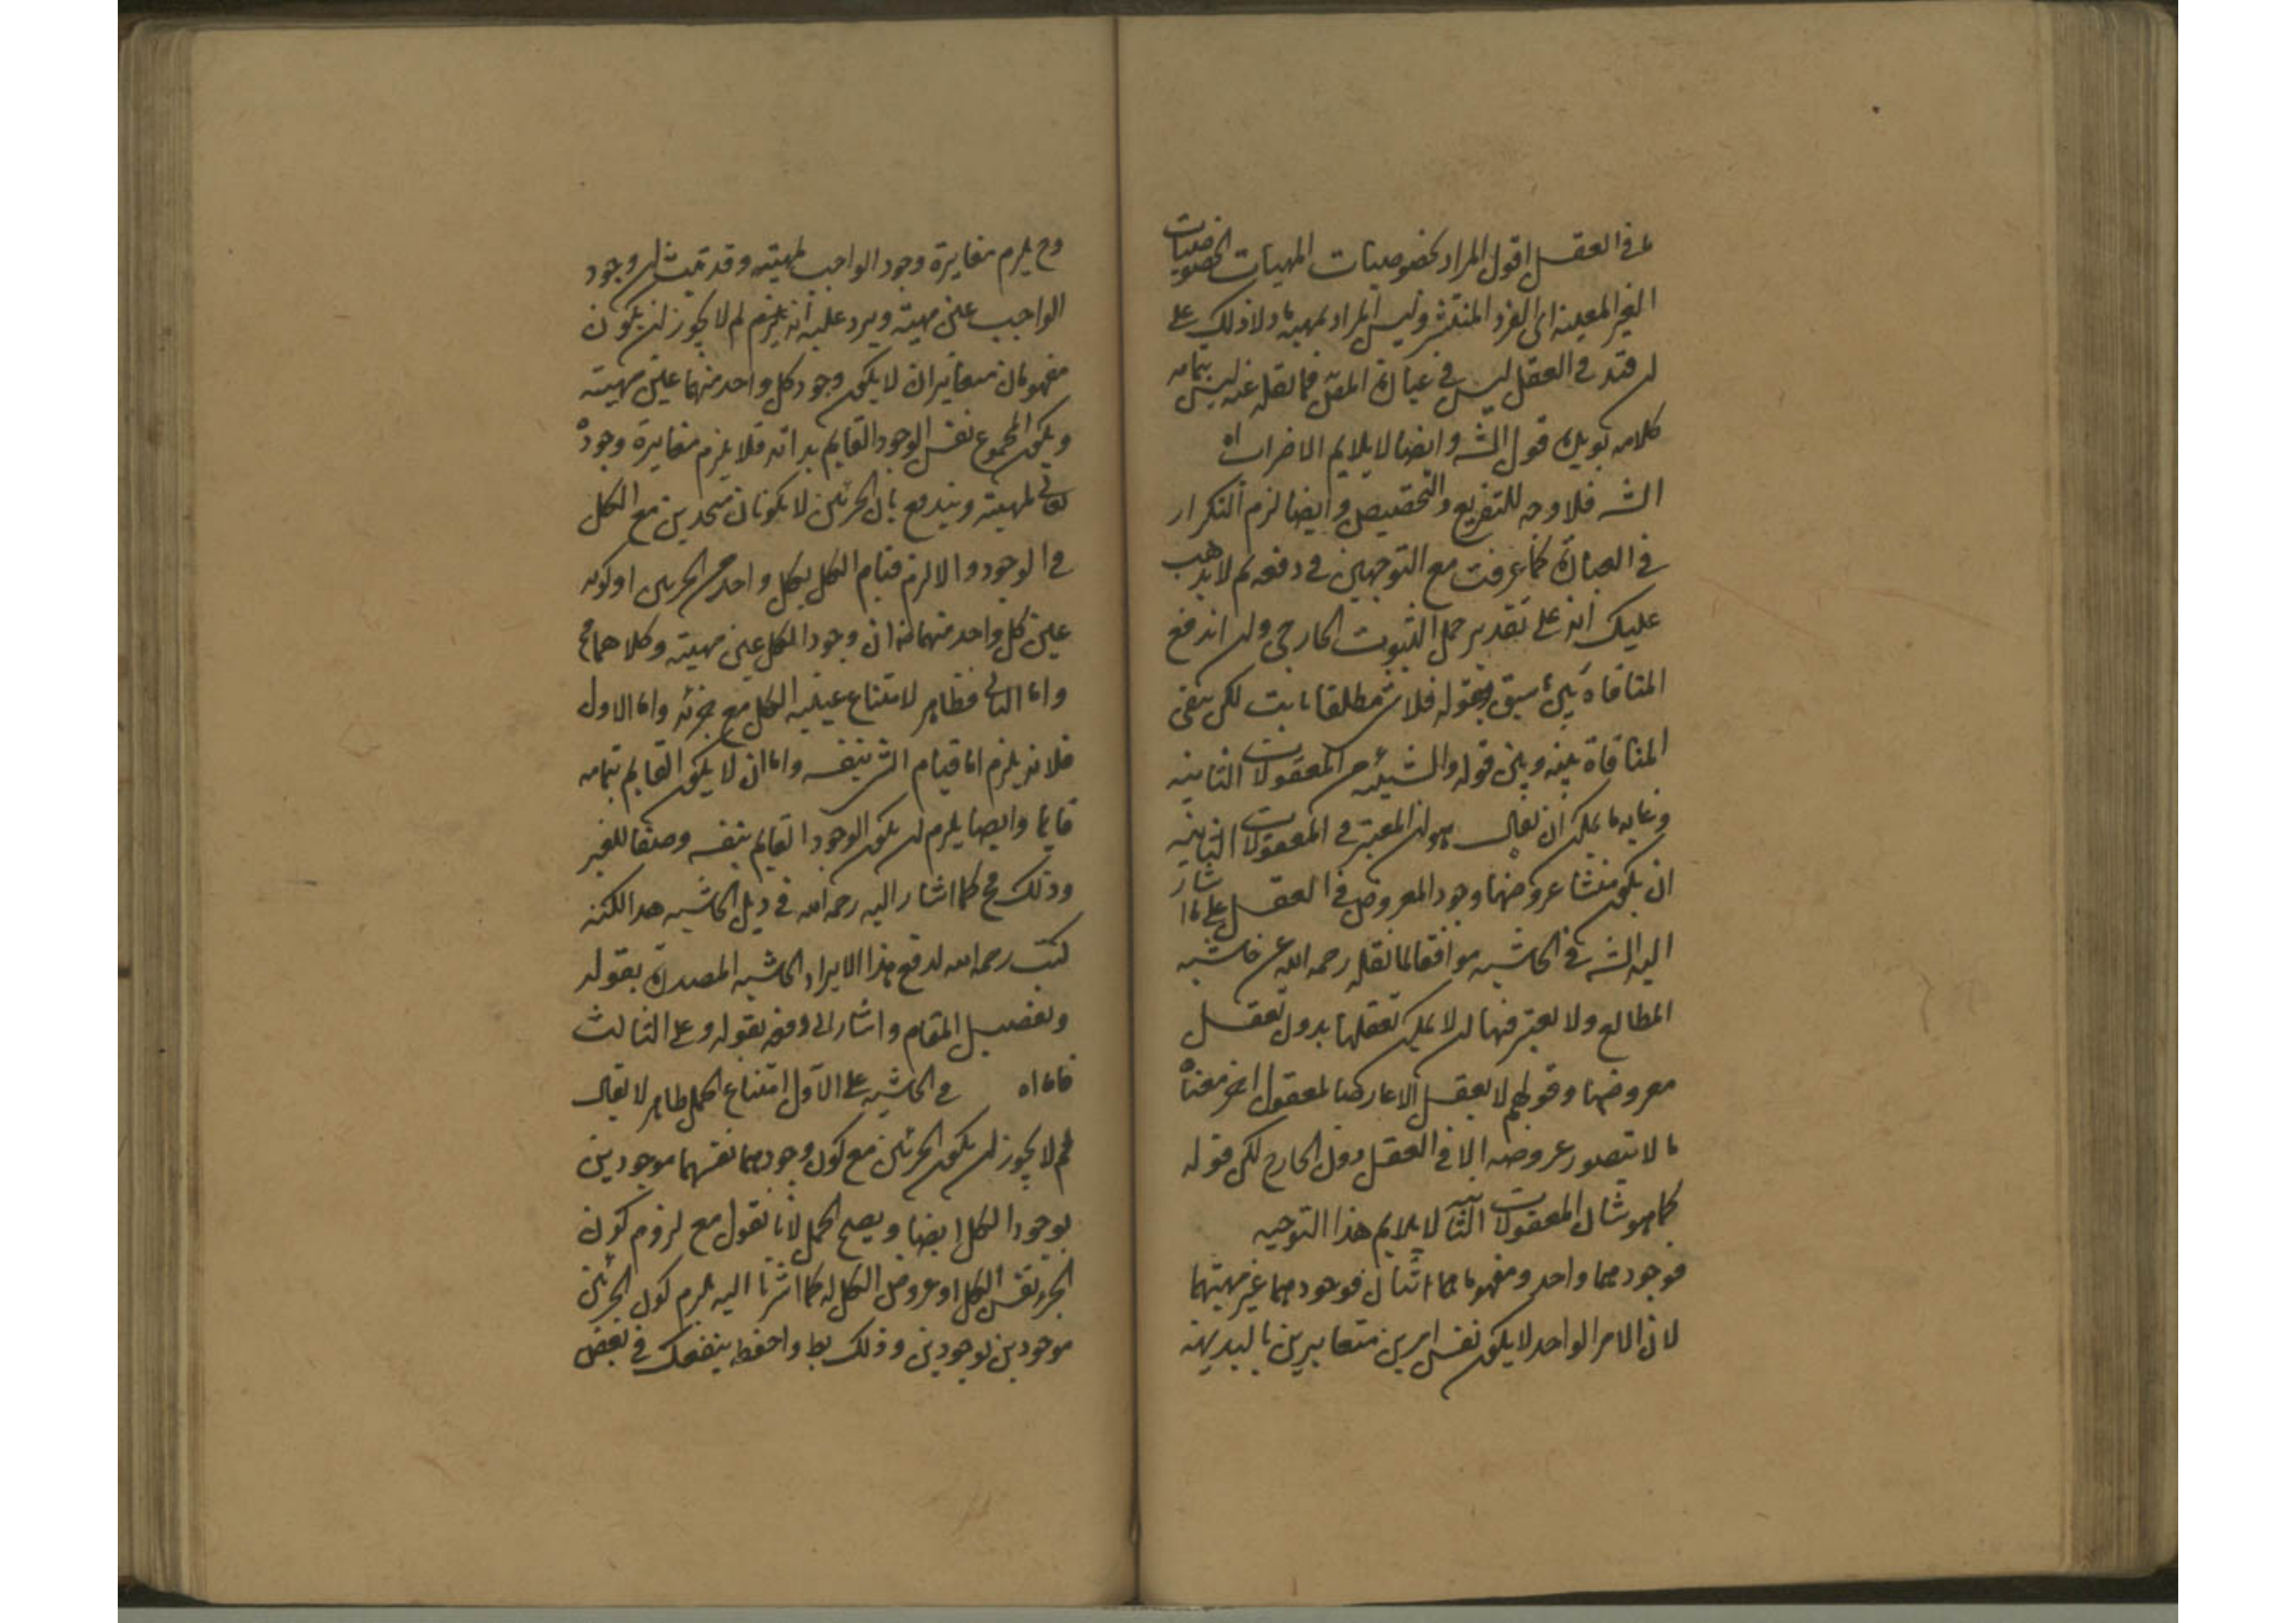 ما فى العقل اقول المراد بخصوصيات المهيات الخصوصيات
الغير المعينة اى الفرد المنتشر وليس المراد لمهية ما ولا ذلك على
ان قيد فى العقل ليس فى عبارة المص فما نقله عنه ليس بتمامه
كلامه قول الش وايضا لا يلايم الاضراب اه
الش فلا وجه للتفريع والتخصيص وايضا لزم التكرار
فى العبارة كما عرفت مع التوجهين فى دفعه ثم لا يذهب
عليك انه على تقدير حمل الثبوت الخارجى وان اندفع
المنافاة سبق بقوله فلا شئ مطلقا ثابت لكن بقى
المنافاة بينه وبين قوله والشيئية من المعقولات الثانية
وغاية ما يمكن ان يقال هو ان المعتبر فى المعقولات الثانية
ان يكون منشا عروضها وجود المعروض فى العقل على ما اشار
اليه الش فى الحاشيه موافقا لما نقله رحمه الله عن حاشيه
المطالع ولا يعتبر فيها ان لا يمكن تعقلها بدون تعقل
معروضها وقولهم لا يعقل الا عارضا لمعقول اخر معناه
ما لا يتصور عروضه الا فى العقل دون الخارج لكن قوله
كما هو شان المعقولات الثانية لا يلايم هذا التوجيه
فوجودهما واحد ومفهوماهما اثنان فوجودهما غير مهيتهما
لان الامر الواحد لا يكون نفس امرين متغايرين بالبديهة
وح يلزم مغايرة وجود الواجب لمهيته وقد ثبت ان وجود
الواجب عين مهيته ويرد عليه انه لم لا يجوز ان يكون
مفهومان متغايران لا يكون وجود كل واحد منهما عين مهيته
ويكون المجموع نفس الوجود القايم بذاته فلا يلزم مغايرة وجوده
تعالى لمهيته ويندفع بان الجزئين لا يكونان متحدين مع الكل
فى الوجود والا لزم قيام الكل بكل واحد من الجزئين او كونه
عين كل واحد منهما لان وجود الكل عين مهيته وكلاهما مح
واما الثانى فظاهر لامتناع عينية الكل مع جزئه واما الاول
فلانه يلزم اما قيام الشئ بنفسه واما ان لا يكون القايم بتمامه
قايما وايضا يلزم ان يكون الوجود القايم بنفسه وصفا للغير
وذلك مح كما اشار اليه رحمه الله فى ذيل الحاشيه هذا لكنه
كتب رحمه الله لدفع هذا الايراد الحاشيه المصدرة بقوله
وتفصيل المقام واشار الى دفعه بقوله وعلى الثالث
فاما اه فى الحاشيه على الاول امتناع الحمل ظاهر لا يقال
لم لا يجوز ان يكون الجزئين مع كون وجودهما نفسهما موجودين
بوجود الكل ايضا ويصح الحمل لانا نقول مع لزوم كون
الجزء نفس الكل او عروض الكل له كما اشرنا اليه يلزم كون الجزئين
موجودين بوجودين وذلك بط واحفظه ينفعك فى بعض